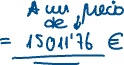 A un precio
de
= 15011'76 €